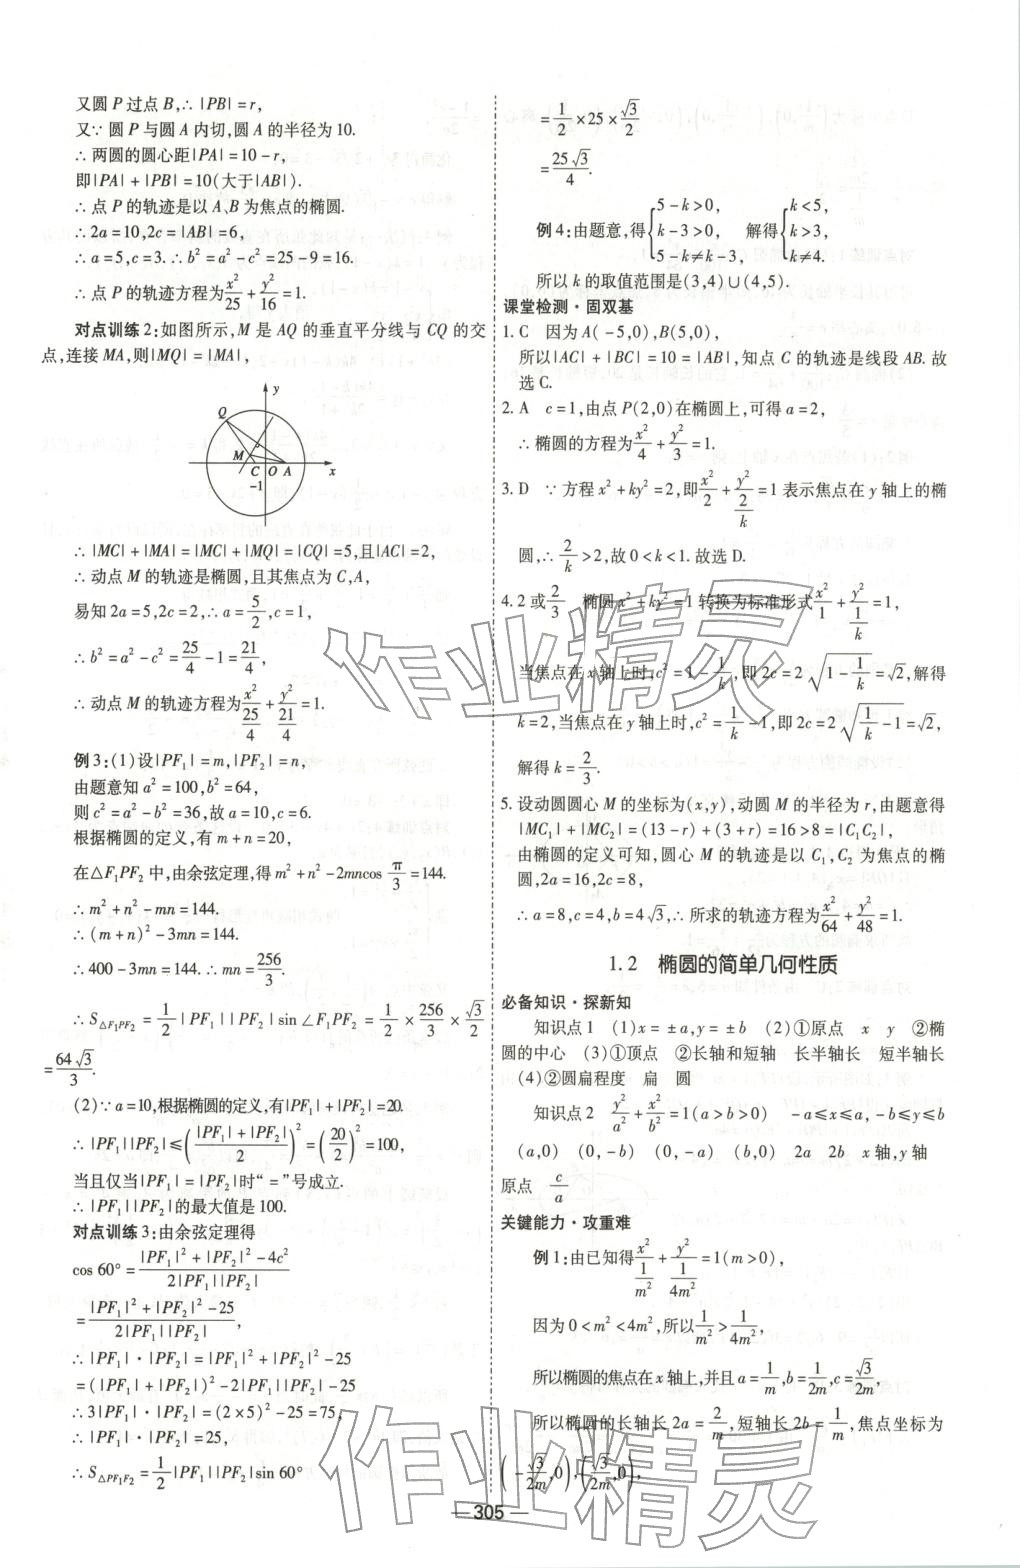 又圆 P 过点 B,∴ |PB| = r,
又∵ 圆 P 与圆 A 内切,圆 A 的半径为 10.
∴ 两圆的圆心距|PA| = 10 - r,
即|PA| + |PB| = 10(大于|AB|).
∴ 点 P 的轨迹是以 A,B 为焦点的椭圆.
∴ 2a = 10,2c = |AB| = 6,
∴ a = 5,c = 3. ∴ b² = a² - c² = 25 - 9 = 16.
∴ 点 P 的轨迹方程为 x²/25 + y²/16 = 1.
对点训练 2:如图所示,M 是 AQ 的垂直平分线与 CQ 的交
点,连接 MA,则|MQ| = |MA|,
y
Q
M
C O A x
-1
∴ |MC| + |MA| = |MC| + |MQ| = |CQ| = 5,且|AC| = 2,
∴ 动点 M 的轨迹是椭圆,且其焦点为 C,A,
易知 2a = 5,2c = 2,∴ a = 5/2,c = 1,
∴ b² = a² - c² = 25/4 - 1 = 21/4,
∴ 动点 M 的轨迹方程为 x²/(25/4) + y²/(21/4) = 1.
例 3:(1)设|PF₁| = m,|PF₂| = n,
由题意知 a² = 100,b² = 64,
则 c² = a² - b² = 36,故 a = 10,c = 6.
根据椭圆的定义,有 m + n = 20,
在△F₁PF₂ 中,由余弦定理,得 m² + n² - 2mncos π/3 = 144.
∴ m² + n² - mn = 144.
∴ (m + n)² - 3mn = 144.
∴ 400 - 3mn = 144. ∴ mn = 256/3.
∴ S△F₁PF₂ = 1/2 |PF₁||PF₂|sin ∠F₁PF₂ = 1/2 × 256/3 × √3/2
= 64√3/3.
(2)∵ a = 10,根据椭圆的定义,有|PF₁| + |PF₂| = 20.
∴ |PF₁||PF₂| ≤ ((|PF₁| + |PF₂|)/2)² = (20/2)² = 100,
当且仅当|PF₁| = |PF₂|时“=”号成立.
∴ |PF₁||PF₂|的最大值是 100.
对点训练 3:由余弦定理得
cos 60° = (|PF₁|² + |PF₂|² - 4c²)/(2|PF₁||PF₂|)
= (|PF₁|² + |PF₂|² - 25)/(2|PF₁||PF₂|),
∴ |PF₁|·|PF₂| = |PF₁|² + |PF₂|² - 25
= (|PF₁| + |PF₂|)² - 2|PF₁||PF₂| - 25
∴ 3|PF₁|·|PF₂| = (2×5)² - 25 = 75,
∴ |PF₁|·|PF₂| = 25,
∴ S△PF₁F₂ = 1/2 |PF₁||PF₂|sin 60°
= 1/2 × 25 × √3/2
= 25√3/4.
例 4:由题意,得{5 - k > 0, k - 3 > 0, 5 - k ≠ k - 3, 解得{k < 5, k > 3, k ≠ 4.
所以 k 的取值范围是(3,4)∪(4,5).
课堂检测·固双基
1. C 因为 A( - 5,0),B(5,0),
所以|AC| + |BC| = 10 = |AB|,知点 C 的轨迹是线段 AB. 故
选 C.
2. A c = 1,由点 P(2,0)在椭圆上,可得 a = 2,
∴ 椭圆的方程为 x²/4 + y²/3 = 1.
3. D ∵ 方程 x² + ky² = 2,即 x²/2 + y²/(2/k) = 1 表示焦点在 y 轴上的椭
圆,∴ 2/k > 2,故 0 < k < 1. 故选 D.
4. 2 或 2/3 椭圆 x² + ky² = 1 转换为标准形式 x²/1 + y²/(1/k) = 1,
当焦点在 x 轴上时,c² = 1 - 1/k,即 2c = 2√(1 - 1/k) = √2,解得
k = 2,当焦点在 y 轴上时,c² = 1/k - 1,即 2c = 2√(1/k - 1) = √2,
解得 k = 2/3.
5. 设动圆圆心 M 的坐标为(x,y),动圆 M 的半径为 r,由题意得
|MC₁| + |MC₂| = (13 - r) + (3 + r) = 16 > 8 = |C₁C₂|,
由椭圆的定义可知,圆心 M 的轨迹是以 C₁,C₂ 为焦点的椭
圆,2a = 16,2c = 8,
∴ a = 8,c = 4,b = 4√3,∴ 所求的轨迹方程为 x²/64 + y²/48 = 1.
1.2 椭圆的简单几何性质
必备知识·探新知
知识点 1 (1)x = ±a,y = ±b (2)①原点 x y ②椭
圆的中心 (3)①顶点 ②长轴和短轴 长半轴长 短半轴长
(4)②圆扁程度 扁 圆
知识点 2 y²/a² + x²/b² = 1(a > b > 0) -a ≤ x ≤ a, -b ≤ y ≤ b
(a,0) (0, -b) (0, -a) (b,0) 2a 2b x 轴,y 轴
原点 c/a
关键能力·攻重难
例 1:由已知得 x²/(1/m²) + y²/(1/4m²) = 1(m > 0),
因为 0 < m² < 4m²,所以 1/m² > 1/4m²,
所以椭圆的焦点在 x 轴上,并且 a = 1/m,b = 1/2m,c = √3/2m,
所以椭圆的长轴长 2a = 2/m,短轴长 2b = 1/m,焦点坐标为
( - √3/2m,0),(√3/2m,0),
— 305 —
作业精灵
作业精灵